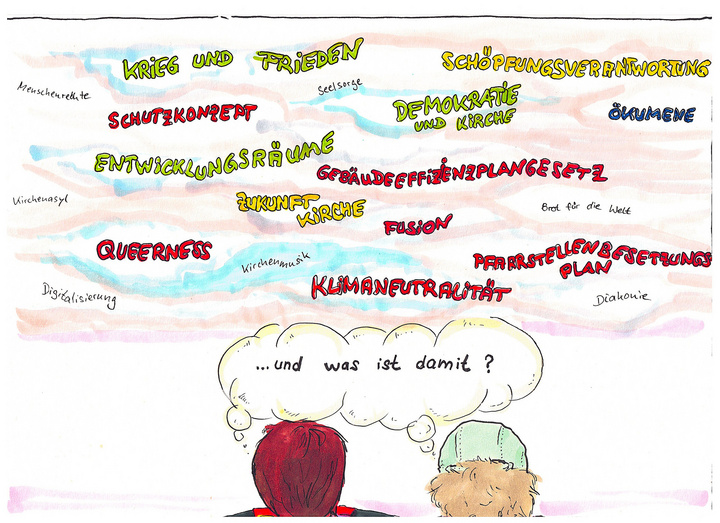 KRIEG UND FRIEDEN
SCHÖPFUNGSVERANTWORTUNG
Menschenrechte
Seelsorge
SCHUTZKONZEPT
DEMOKRATIE
UND KIRCHE
ÖKUMENE
ENTWICKLUNGSRÄUME
GEBÄUDEEFFIZIENZPLANGESETZ
Kirchenasyl
ZUKUNFT
KIRCHE
Brot für die Welt
FUSION
QUEERNESS
Kirchenmusik
PFARRSTELLENBESETZUNGS
PLAN
Digitalisierung
KLIMANEUTRALITÄT
Diakonie
...und was ist damit ?